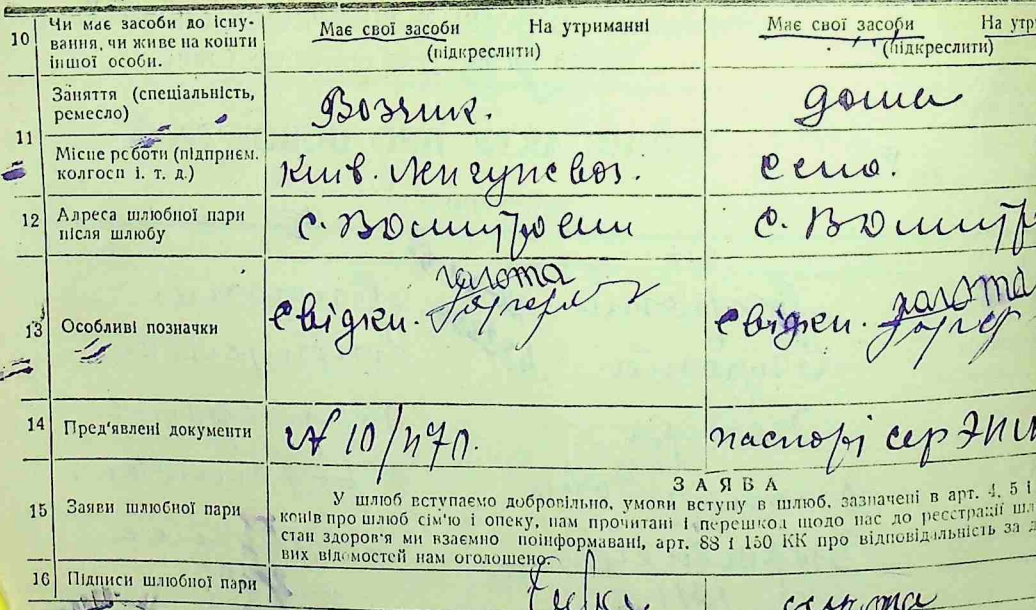 10 Чи має засоби до існу-
вання, чи живе на кошти
іншої особи.
Має свої засоби На утриманні
(підкреслити)
Має свої засоби На утр
(підкреслити)
11 Заняття (спеціальність,
ремесло)
Возчик.
дома
Місце роботи (підприєм.
колгосп і. т. д.)
Київ.
село.
12 Адреса шлюбної пари
після шлюбу
с. В Дмитровки
с. В Дмитр
13 Особливі позначки
Свідки.
Свідки.
14 Пред'явлені документи
№ 10/
паспорт сер
15 Заяви шлюбної пари
ЗАЯВА
У шлюб вступаємо добровільно, умови вступу в шлюб, зазначені в арт. 4, 5 і
конів про шлюб сім'ю і опеку, нам прочитані і перешкод щодо нас до реєстрації шл
стан здоров'я ми взаємно поінформавані, арт. 88 і 150 КК про відповідальність за
вих відомостей нам оголошено.
16 Підписи шлюбної пари